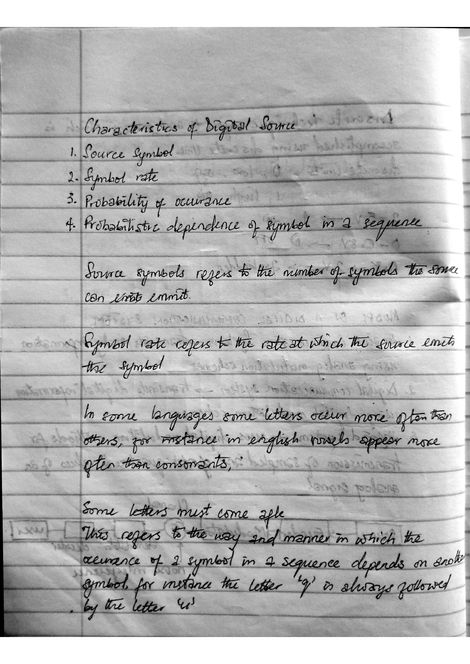 Characteristics of Digital Source
1. Source Symbol
2. Symbol rate
3. Probability of occurance
4. Probabilistic dependence of symbol in a sequence
Source symbols refers to the number of symbols the source
can emmit.
Symbol rate refers to the rate at which the source emits
the symbol
In some languages some letters occur more often than
others, for instance in english vowels appear more
often than consonants,
Some letters must come afte
This refers to the way and manner in which the
occurance of a symbol in a sequence depends on another
symbol, for instance the letter 'q' is always followed
by the letter 'u'